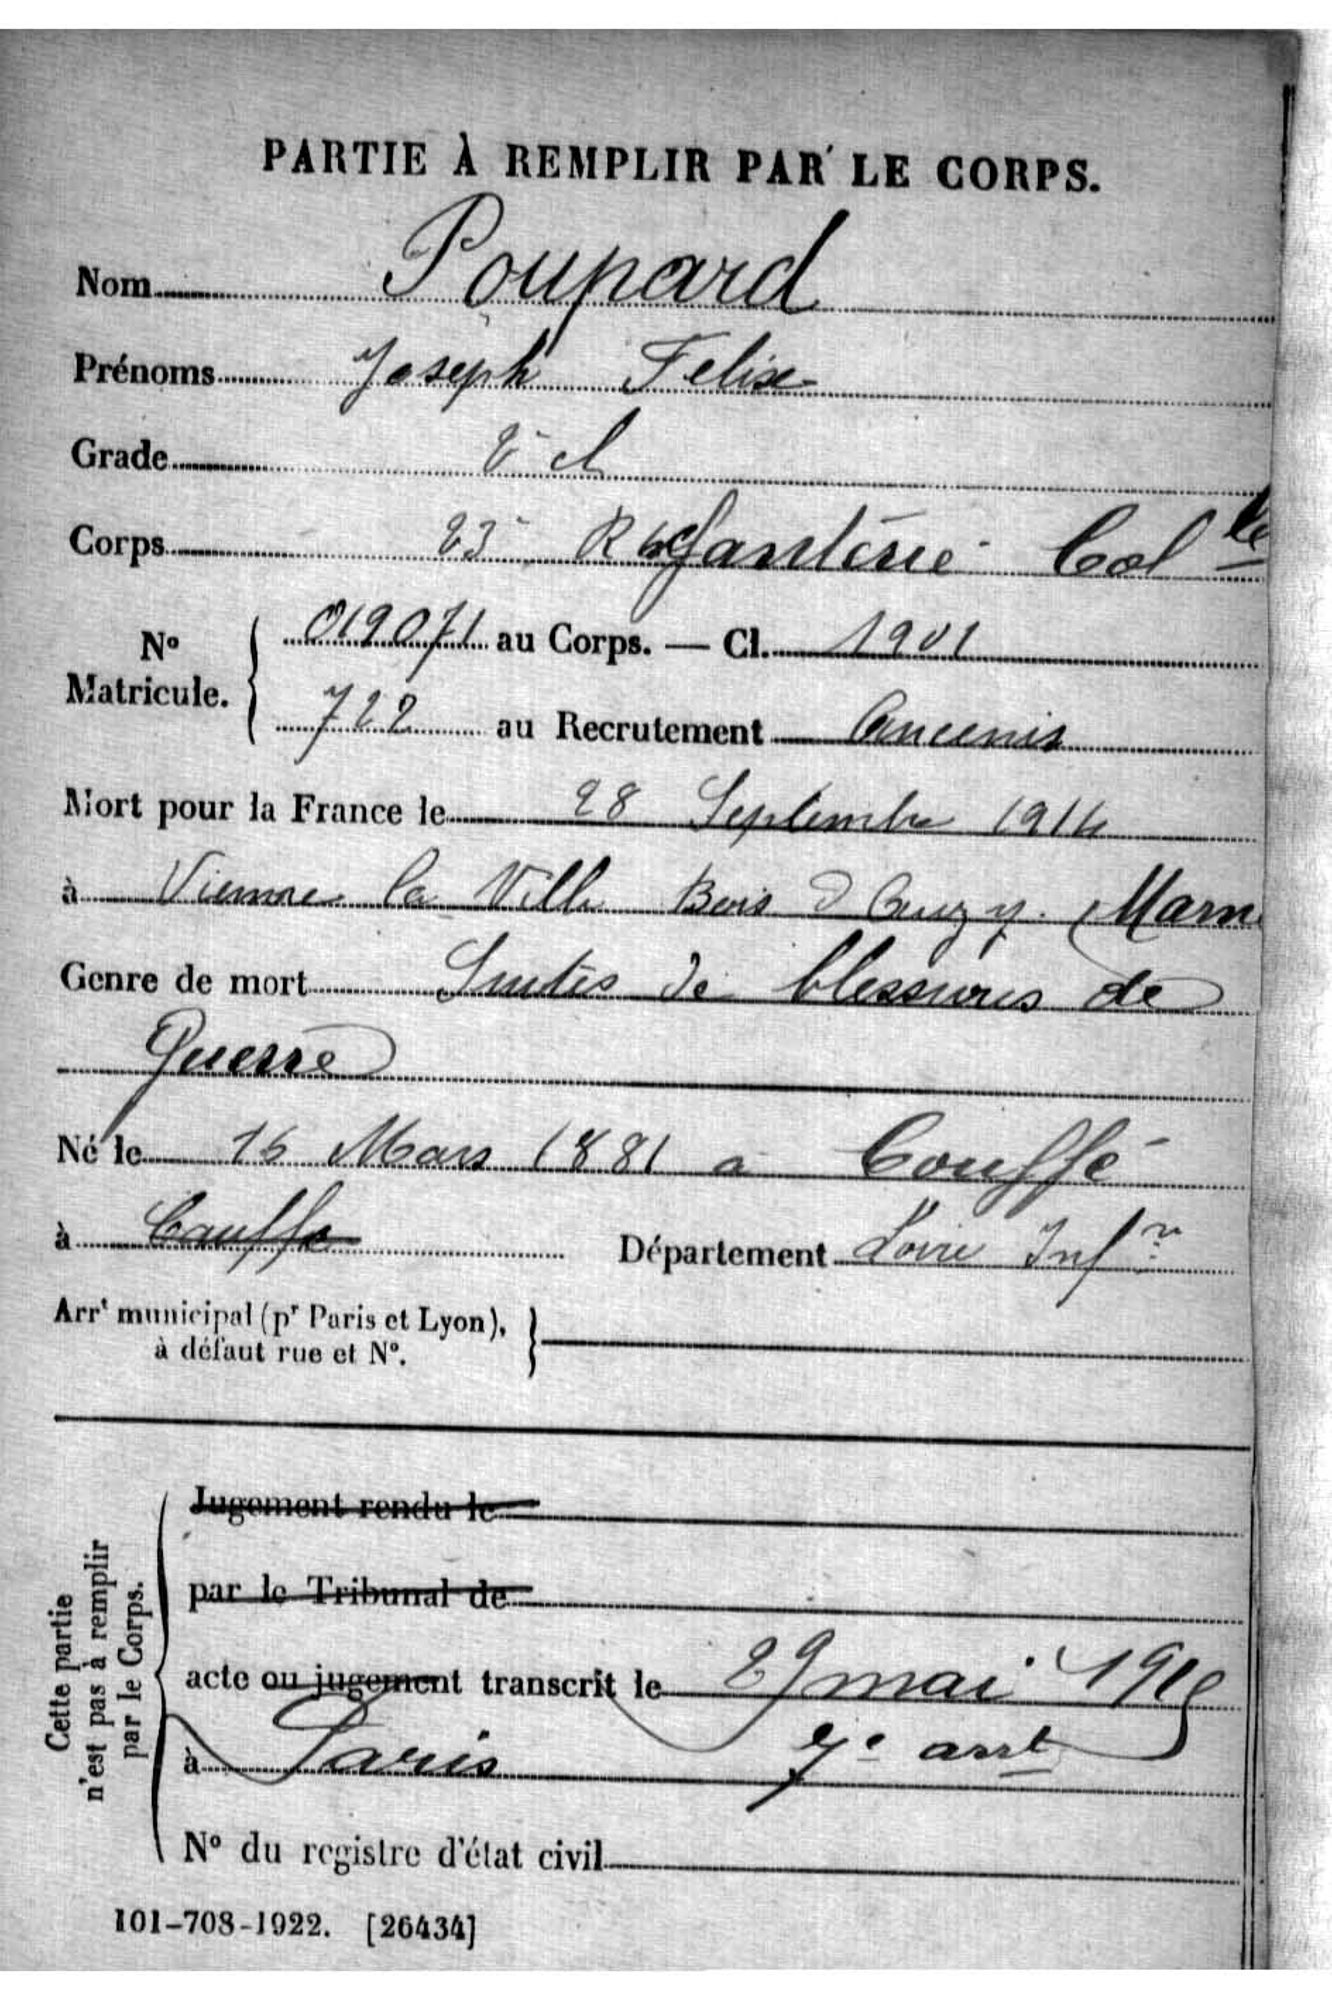 PARTIE À REMPLIR PAR LE CORPS.
Nom Poupard
Prénoms Joseph Felix
Grade 2e cl
Corps 23e R Infanterie Colle
No Matricule. 019071 au Corps. — Cl. 1901
722 au Recrutement Ancenis
Mort pour la France le 28 Septembre 1914
à Vienne la Ville Bois d'Hauzy (Marn
Genre de mort Suites de blessures de
Guerre
Né le 16 Mars 1881 a Couffé
à Couffé Département Loire Infre
Arrt municipal (pr Paris et Lyon),
à défaut rue et No.
Cette partie
n'est pas à remplir
par le Corps.
Jugement rendu le
par le Tribunal de
acte ou jugement transcrit le 29 mai 1915
à Paris 7e arrt
No du registre d'état civil
101-708-1922. [26434]